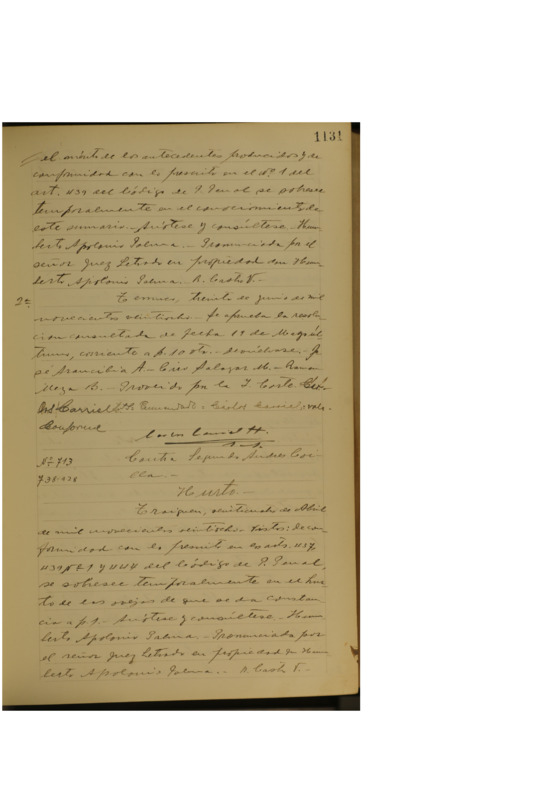 1131
el mérito de los antecedentes producidos y de
conformidad con lo prescrito en el Nº 1 del
art. 439 del Código de P. Penal, se sobresee
temporalmente en el conocimiento de
este sumario.- Anótese y consúltese.- Hum-
berto Apolonio Palma.- Pronunciada por el
señor Juez Letrado en propiedad don Hum-
berto Apolonio Palma.. R. Castro V.-
2ª Temuco, treinta de Junio de mil
novecientos veintiocho.- Se aprueba la resolu-
ción consultada de fecha 19 de Mayo úl-
timo, corriente a f. 10 vta.- Devuélvase.- Jo
sé Arancibia A.- Ciro Salazar M.-
Meza B.- Proveido por la I. Corte
Carriel
Conforme
Nº 713 Contra Segundo Andres
Hurto.-
Traiguen, veintiuno de Abril
de mil novecientos veintiocho.- Vistos: de con-
formidad con lo prescrito en los arts. 437,
439 Nº 1 y 444 del Código de P. Penal,
se sobresee temporalmente en el hur-
to de las ovejas de que se da constan-
cia a f. 1.- Anótese y consúltese.- Hum
berto Apolonio Palma.- Pronunciada por
el señor Juez Letrado en propiedad don Hum
berto Apolonio Palma.. R. Castro V.-